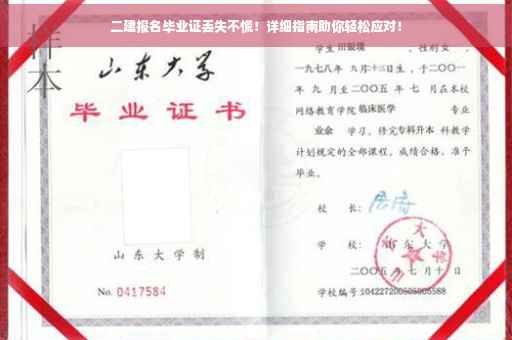 二建报名毕业证丢失不慌！详细指南助你轻松应对！
样本
山东大学
毕业证书
山东大学制
No. 0417584
学生 田 ，性别女 ，
一九七八年 九月十三日生，于二〇〇一
年 九 月至二〇〇五 年 七 月在本校
网络教育学院 临床医学 专业
业余 学习，修完专科升本 科教学
计划规定的全部课程，成绩合格，准予
毕业。
校 长：
学 校：山东大学
二〇〇五 年 七 月 十 日
学校编号:104227200505005588